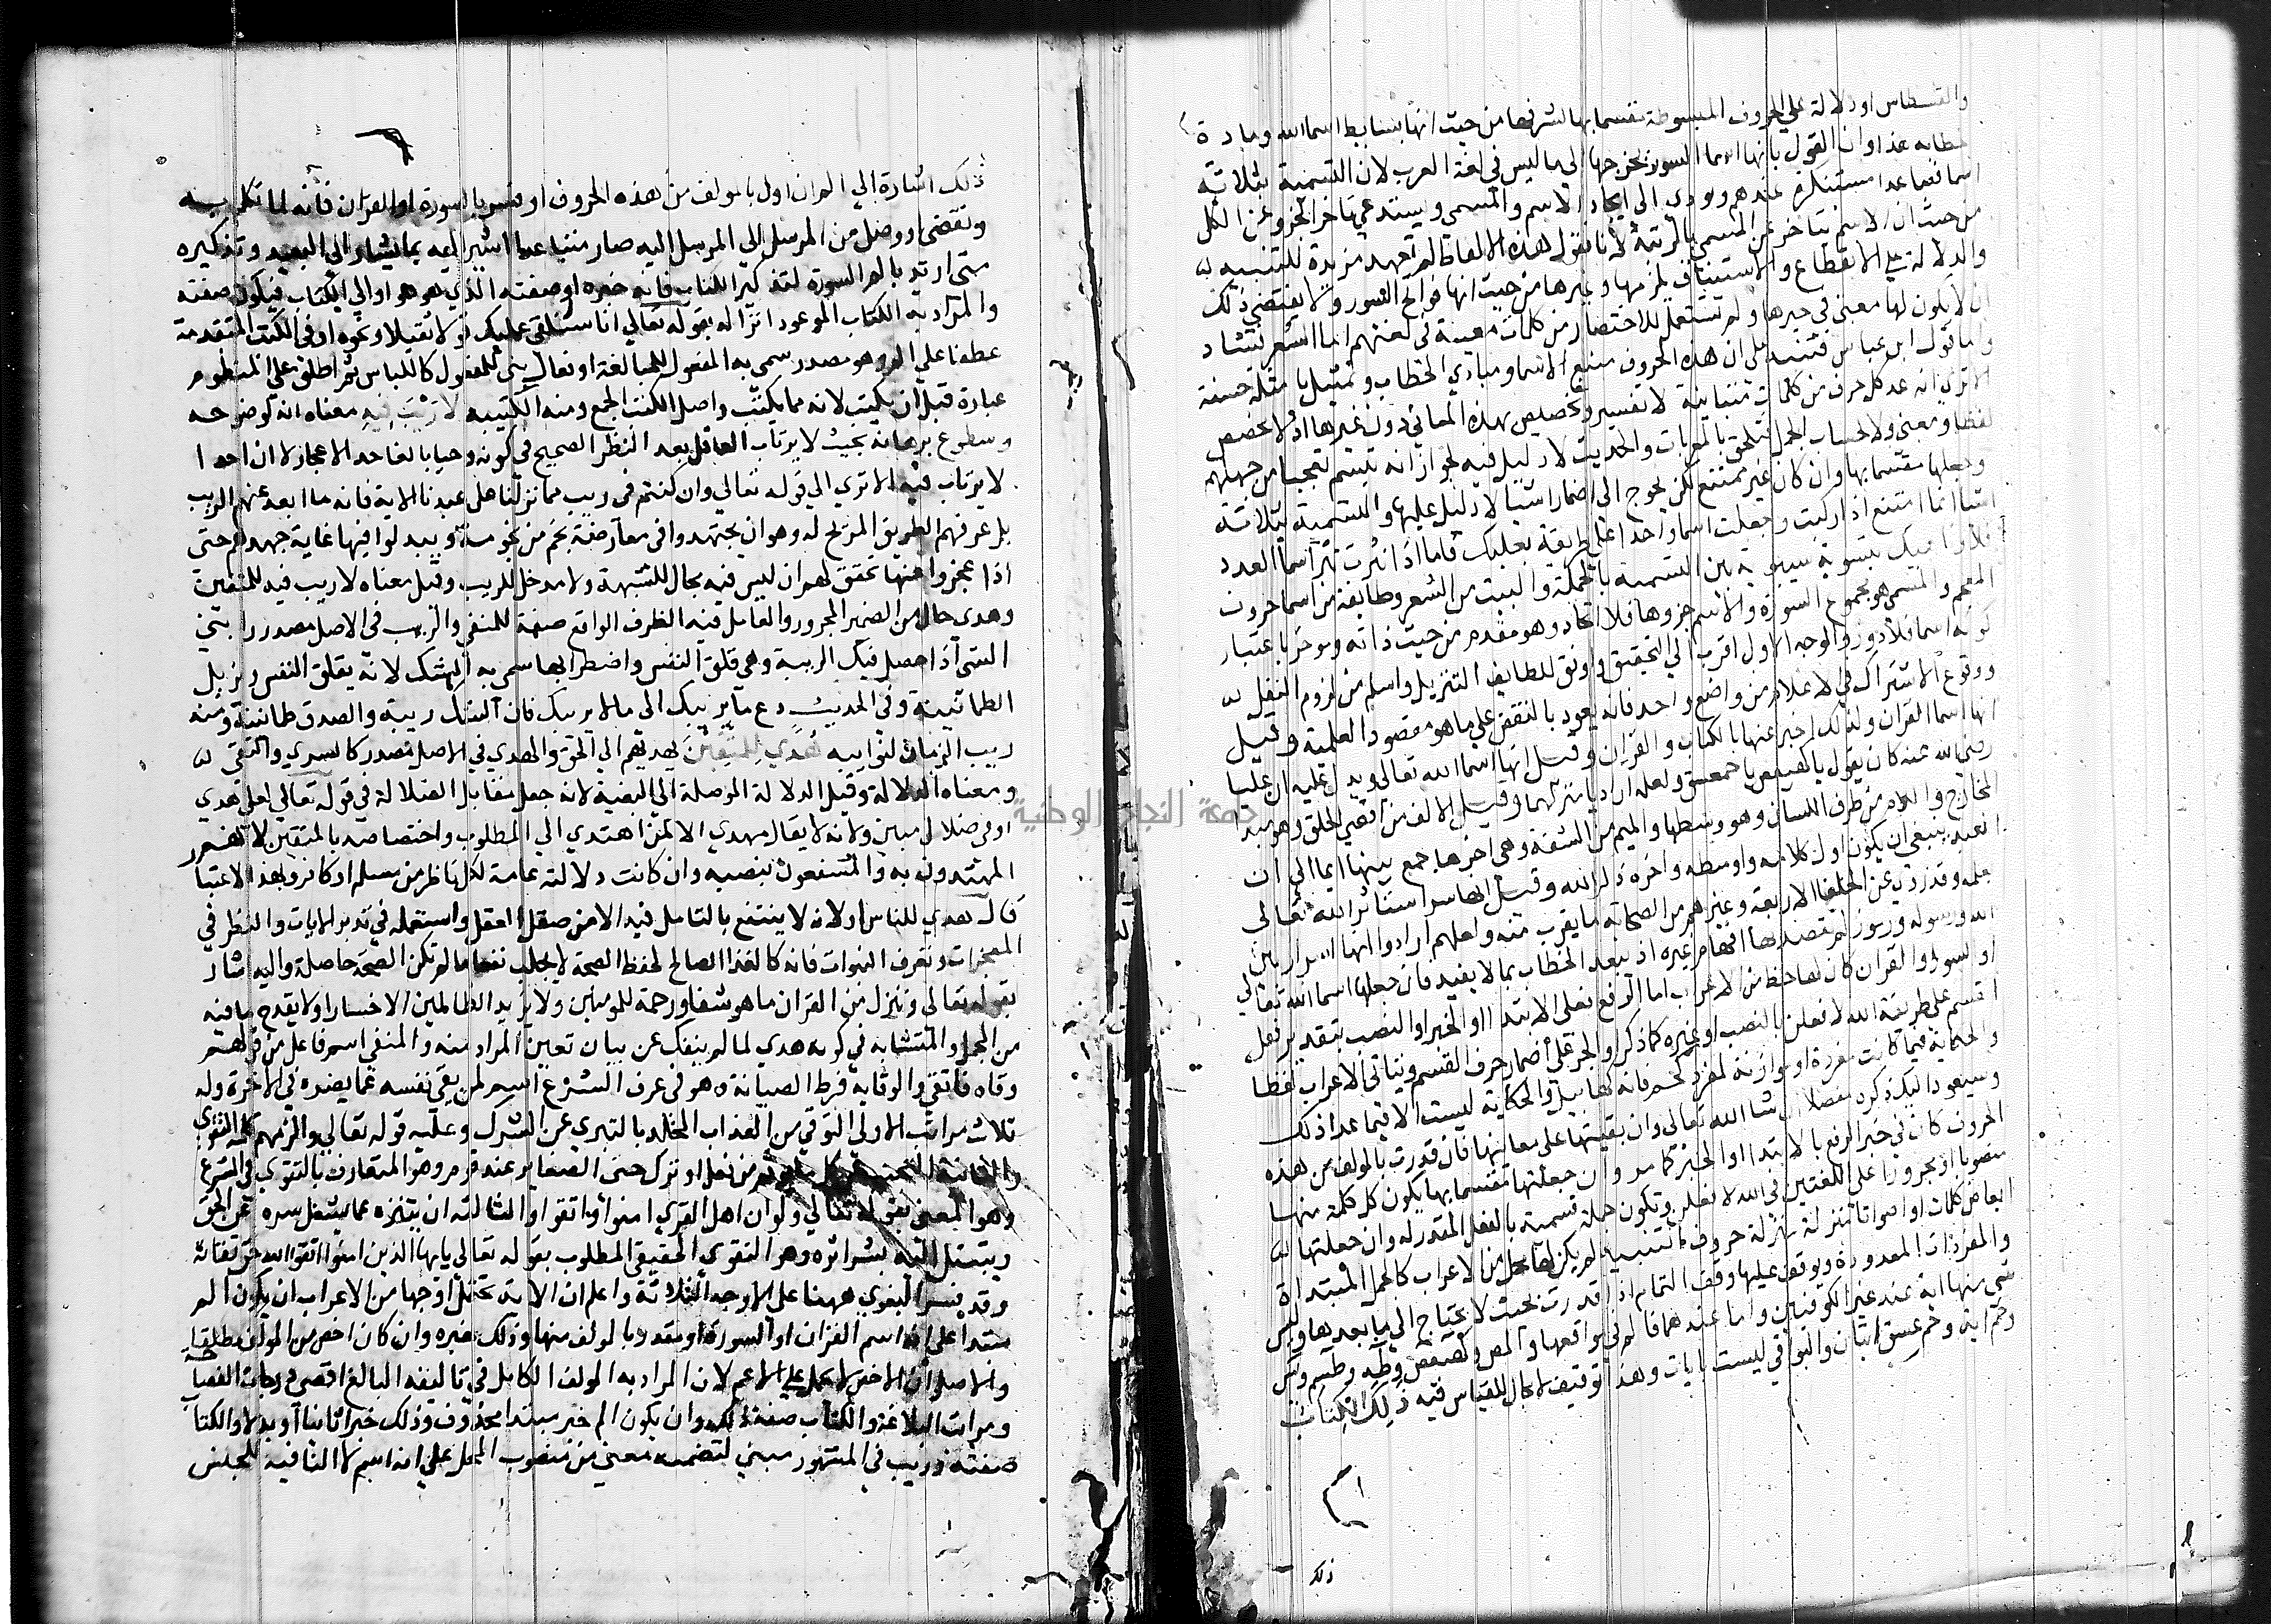 والقسطاس او دلالة علي الحروف المبسوطة مقسما بها لشرفها من حيث انها بسايط اسما الله ومادة
خطابه هذا وان القول بانها اسما السور يخرجها الى ما ليس في لغة العرب لان التسمية بثلاثة
اسما فصاعدا مستنكره عندهم ويودي الى اتحاد الاسم والمسمي ويستدعي تاخر الجزو عن الكل
من حيث ان الاسم يتاخر عن المسمي بالرتبة لانا نقول هذه الالفاظ لم تعهد مزيدة للتنبيه
والدلالة علي الانقطاع والاستيناف يلزمها وغيرها من حيث انها فواتح السور ولا يقتضي ذلك
ان لا يكون لها معني في حيزها ولم تستعمل للاختصار من كلمات معينة في لغتهم اما الشعر فشاد
واما قول ابن عباس فتنبيه على ان هذه الحروف منبع الاسما ومبادي الخطاب وتمثيل بامثلة حسنة
الا تري انه عد كل حرف من كلمات متباينة لا تفسير وتخصيص بهذه المعاني دون غيرها اذ لا مخصص
لفظا ومعني ولا لحساب الجمل فتلحق بالمعربات والحديث لا دليل فيه لجواز انه تبسم تعجبا من جهلهم
وجعلها مقسما بها وان كان غير ممتنع لكن يحوج الى اضمار اشيا لا دليل عليها والتسمية بثلاثة
اسما انما امتنع اذا ركبت وجعلت اسما واحدا على طريقة بعلبك فاما اذا نثرت نثر اسما العدد
فلا وناهيك بتسوية سيبويه بين التسمية بالجملة والبيت من الشعر وطايفة من اسما حروف
المعجم والمسمي هو مجموع السورة والاسم جزوها فلا اتحاد وهو مقدم من حيث ذاته وموخر باعتبار
كونه اسما فلا دور والوجه الاول اقرب الي التحقيق واوفق للطايف التنزيل واسلم من لزوم النقل
ووقوع الاشتراك في الاعلام من واضع واحد فانه يعود بالنقض علي ما هو مقصود العلمية وقيل
انها اسما القران ولذلك اخبر عنها بالكتاب والقران وقيل انها اسما الله تعالى ويدل عليه ان عليا
رضي الله عنه كان يقول يا كهيعص يا حمعسق ولعله اراد يا منزلهما وقيل الالف من اقصي الحلق وهو مبدا
المخارج واللام من طرف اللسان وهو وسطها والميم من الشفة وهي اخرها جمع بينها ايما الي ان
العبد ينبغي ان يكون اول كلامه واوسطه واخره ذكر الله وقيل انها سر استاثر الله تعالى
بعلمه وقد روي عن الخلفا الاربعة وغيرهم من الصحابة ما يقرب منه ولعلهم ارادوا انها اسرار بين
الله ورسوله ورموز لم يقصد بها افهام غيره اذ يبعد الخطاب بما لا يفيد فان جعلها اسما الله تعالي
او السور او القران كان لها حظ من الاعراب اما الرفع فعلى الابتدا او الخبر او النصب بتقدير فعل
القسم على طريقة الله لافعلن بالنصب او غيره كما ذكر او الجر على اضمار حرف القسم ويتاتى الاعراب لفظا
والحكاية فيما كانت مفردة او موازنة لمفرد كحم فانه كهابيل والحكاية ليست الا فيما عدا ذلك
وسيعود اليك ذكره مفصلا ان شا الله تعالى وان بقيتها على معانيها فان قدرت بالمولف من هذه
الحروف كان في حيز الرفع بالابتدا او الخبر كما مر وان جعلتها مقسما بها يكون كل كلمة منها
منصوبا او مجرورا على اللغتين في الله لافعلن وتكون جملة قسمية بالفعل المقدر له وان جعلتها
ابعاض كلمات او اصواتا منزلة منزلة حروف التنبيه لم يكن لها محل من الاعراب كالجمل المبتداة
والمفردات المعدودة ويوقف عليها وقف التمام اذا قدرت بحيث لا يحتاج الي ما بعدها وليس
شي منها اية عند غير الكوفيين واما عندهم فالم في مواقعها والمص وكهيعص وطه وطسم ويس
وحم اية وحم عسق ايتان والبواقي ليست بايات وهذا توقيف لا مجال للقياس فيه ذلك الكتاب
ذلك
ذلك اشارة الي الم ان اول بالمولف من هذه الحروف او فسر بالسورة او القران فانه لما تكلم به
وتقضى او وصل من المرسل الي المرسل اليه صار متباعدا اشير اليه بما يشار الي البعيد وتذكيره
متى اريد بالم السورة لتذكير الكتاب فانه خبره او صفته الذي هو هو او الي الكتاب فيكون صفته
والمراد به الكتاب الموعود انزاله بقوله تعالي انا سنلقي عليك قولا ثقيلا ونحوه او في الكتب المتقدمة
وهو مصدر سمى به المفعول للمبالغة او فعال بني للمفعول كاللباس ثم اطلق علي المنظوم
عبارة قبل ان يكتب لانه مما يكتب واصل الكتب الجمع ومنه الكتيبة لا ريب فيه معناه انه لوضوحه
وسطوع برهانه بحيث لا يرتاب العاقل بعد النظر الصحيح في كونه وحيا بالغا حد الاعجاز لا ان احدا
لا يرتاب فيه الا تري الي قوله تعالي وان كنتم في ريب مما نزلنا على عبدنا الاية فانه ما ابعد عنهم الريب
بل عرفهم الطريق المزيح له وهو ان يجتهدوا في معارضة نجم من نجومه ويبدلوا فيها غاية جهدهم حتى
اذا عجزوا عنها تحقق لهم ان ليس فيه مجال للشبهة ولا مدخل للريب وقيل معناه لا ريب فيه للمتقين
وهدى حال من الضمير المجرور والعامل فيه الظرف الواقع صفة للمنفي والريب في الاصل مصدر رابني
الشي اذا حصل فيك الريبة وهي قلق النفس واضطرابها سمي به الشك لانه يقلق النفس ويزيل
الطمانينة وفي الحديث دع ما يريبك الى ما لا يريبك فان الشك ريبة والصدق طمانينة ومنه
ريب الزمان لنوايبه هدي للمتقين يهديهم الي الحق والهدي في الاصل مصدر كالسري والتقي
ومعناه الدلالة وقيل الدلالة الموصلة الي البغية لانه جعل مقابل الضلالة في قوله تعالي لعلى هدي
او في ضلال مبين ولانه لا يقال مهدي الا لمن اهتدي الي المطلوب واختصاصه بالمتقين لانهم
المهتدون به والمنتفعون بنصبه وان كانت دلالته عامة لكل ناظر من مسلم او كافر وبهذا الاعتبا
قال هدي للناس او لانه لا ينتفع بالتامل فيه الا من صقل العقل واستعمله في تدبر الايات والنظر في
المعجزات وتعرف النبوات فانه كالغذا الصالح لحفظ الصحة لا يجلب نفعا ما لم تكن الصحة حاصلة واليه اشار
بقوله تعالى وننزل من القران ما هو شفا ورحمة للمومنين ولا يزيد الظالمين الا خسارا ولا يقدح ما فيه
من المجمل والمتشابه في كونه هدي لما لم ينفك عن بيان تعين المراد منه والمتقي اسم فاعل من قولهم
وقاه فاتقي والوقاية فرط الصيانة وهو في عرف الشرع اسم لمن يقي نفسه عما يضره في الاخرة وله
ثلاث مراتب الاولي التوقي من العذاب المخلد بالتبري عن الشرك وعليه قوله تعالي والزمهم كلمة التقوي
والثانية التجنب عن كل ما يوثم من فعل او ترك حتى الصغاير عند قوم وهو المتعارف بالتقوي في الشرع
وهو المعني بقوله تعالي ولو ان اهل القري امنوا واتقوا والثالثة ان يتنزه عما يشغل سره عن الحق
ويتبتل اليه بشراشره وهو التقوي الحقيقي المطلوب بقوله تعالي يايها الذين امنوا اتقوا الله حق تقاته
وقد فسر التقوي ههنا على الاوجه الثلاثة واعلم ان الاية تحتمل اوجها من الاعراب ان يكون الم
مبتدا على انه اسم القران او السورة او مقدر بالمولف منها وذلك خبره وان كان اخص من المولف مطلقا
والاصل ان الاخص لا يحمل علي الاعم لان المراد به المولف الكامل في تاليفه البالغ اقصي درجات الفصاحة
ومراتب البلاغة والكتاب صفة ذلك وان يكون الم خبر مبتدا محذوف وذلك خبرا ثانيا او بدلا والكتاب
صفته وريب في المشهور مبني لتضمنه معني من منصوب المحل علي انه اسم لا النافية للجنس
جامعة النجاح الوطنية